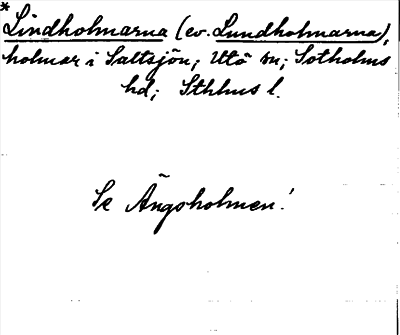 * Lindholmarna (ev. Lundholmarna),
holmar i Saltsjön; Utö sn; Sotholms
hd; Sthlms l.
Se Ängsholmen!